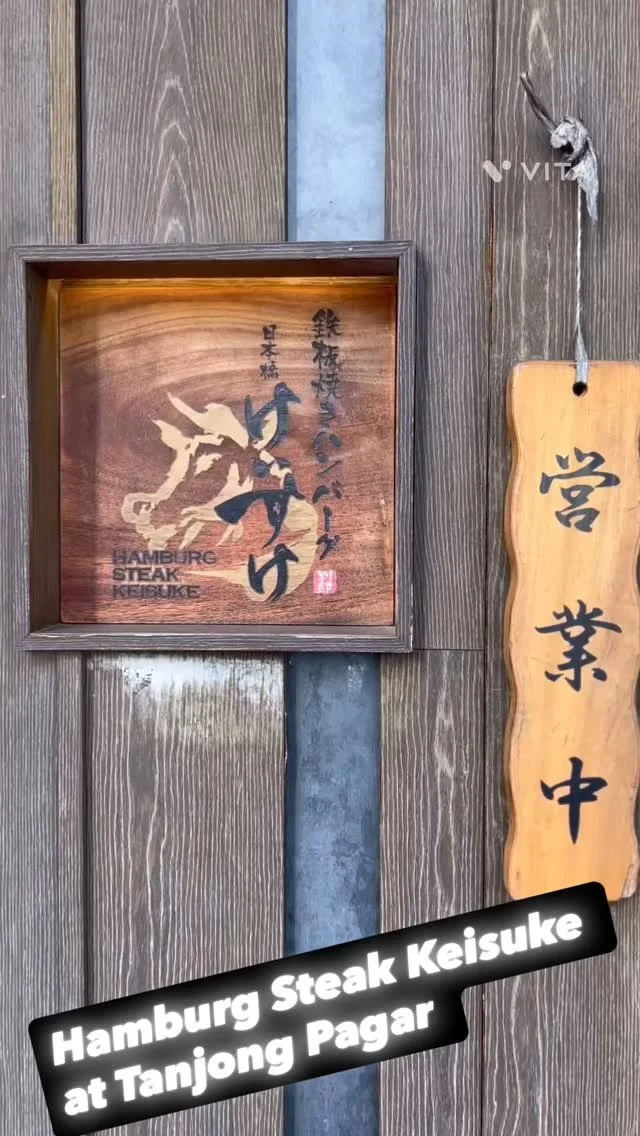 VITA
鉄板焼きハンバーグ
日本橋
けいすけ
HAMBURG
STEAK
KEISUKE
営業中
Hamburg Steak Keisuke
at Tanjong Pagar